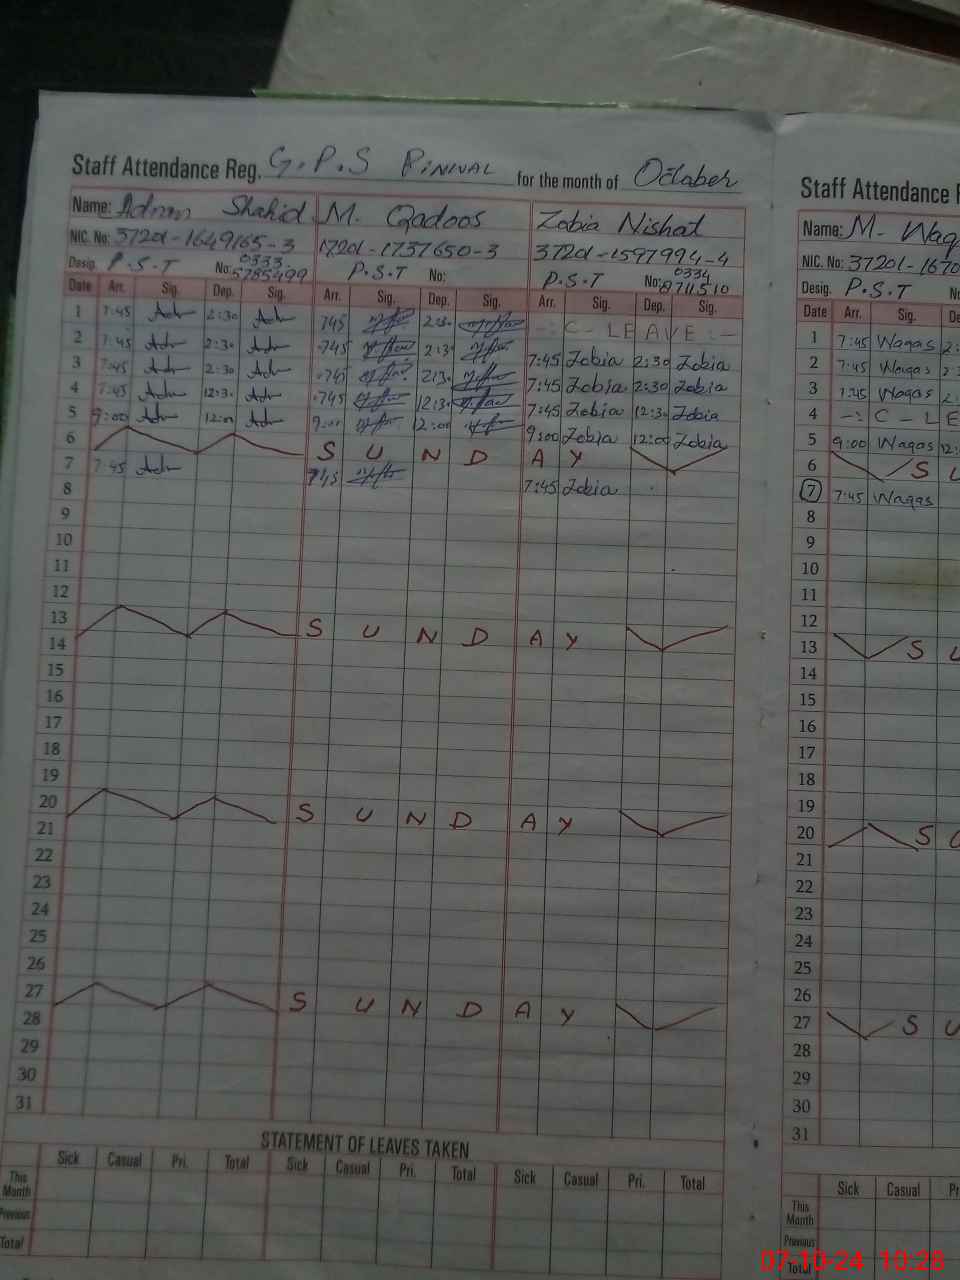 Staff Attendance Reg. G.P.S PINWAL for the month of October
Name: Adnan Shahid M. Qadoos Zobia Nishat
NIC. No: 37201-1649165-3 17201-1737650-3 37201-1597994-4
Desig. P.S.T No: 0333-5785499 P.S.T No: P.S.T No: 0334 8711510
Date Arr. Sig. Dep. Sig. Arr. Sig. Dep. Sig. Arr. Sig. Dep. Sig.
1 7:45 Adn 2:30 Adn 745 2:30 -: C - LEAVE :-
2 7:45 Adn 2:30 Adn 745 2:3 7:45 Zobia 2:30 Zobia
3 7:45 Adn 2:30 Adn 745 2:3 7:45 Zobia 2:30 Zobia
4 7:45 Adn 12:30 Adn 745 12:30 7:45 Zobia 12:30 Zobia
5 9:00 Adn 12:00 Adn 9:00 12:00 9:00 Zobia 12:00 Zobia
6 S U N D A Y
7 7:45 Adn 7:45 7:45 Zobia
8
9
10
11
12
13 S U N D A Y
14
15
16
17
18
19
20 S U N D A Y
21
22
23
24
25
26
27 S U N D A Y
28
29
30
31
STATEMENT OF LEAVES TAKEN
Sick Casual Pri. Total Sick Casual Pri. Total Sick Casual Pri. Total
This Month
Previous
Total
Staff Attendance
Name: M. Waq
NIC. No: 37201-1670
Desig. P.S.T
Date Arr. Sig. D
1 7:45 Waqas 2:
2 7:45 Waqas 2:
3 7:45 Waqas 2
4 -: C - LE
5 9:00 Waqas 12:
6 S U
7 7:45 Waqas
8
9
10
11
12
13 S U
14
15
16
17
18
19
20 S U
21
22
23
24
25
26
27 S U
28
29
30
31
Sick Casual Pr
This Month
Previous
Total
07-10-24 10:28